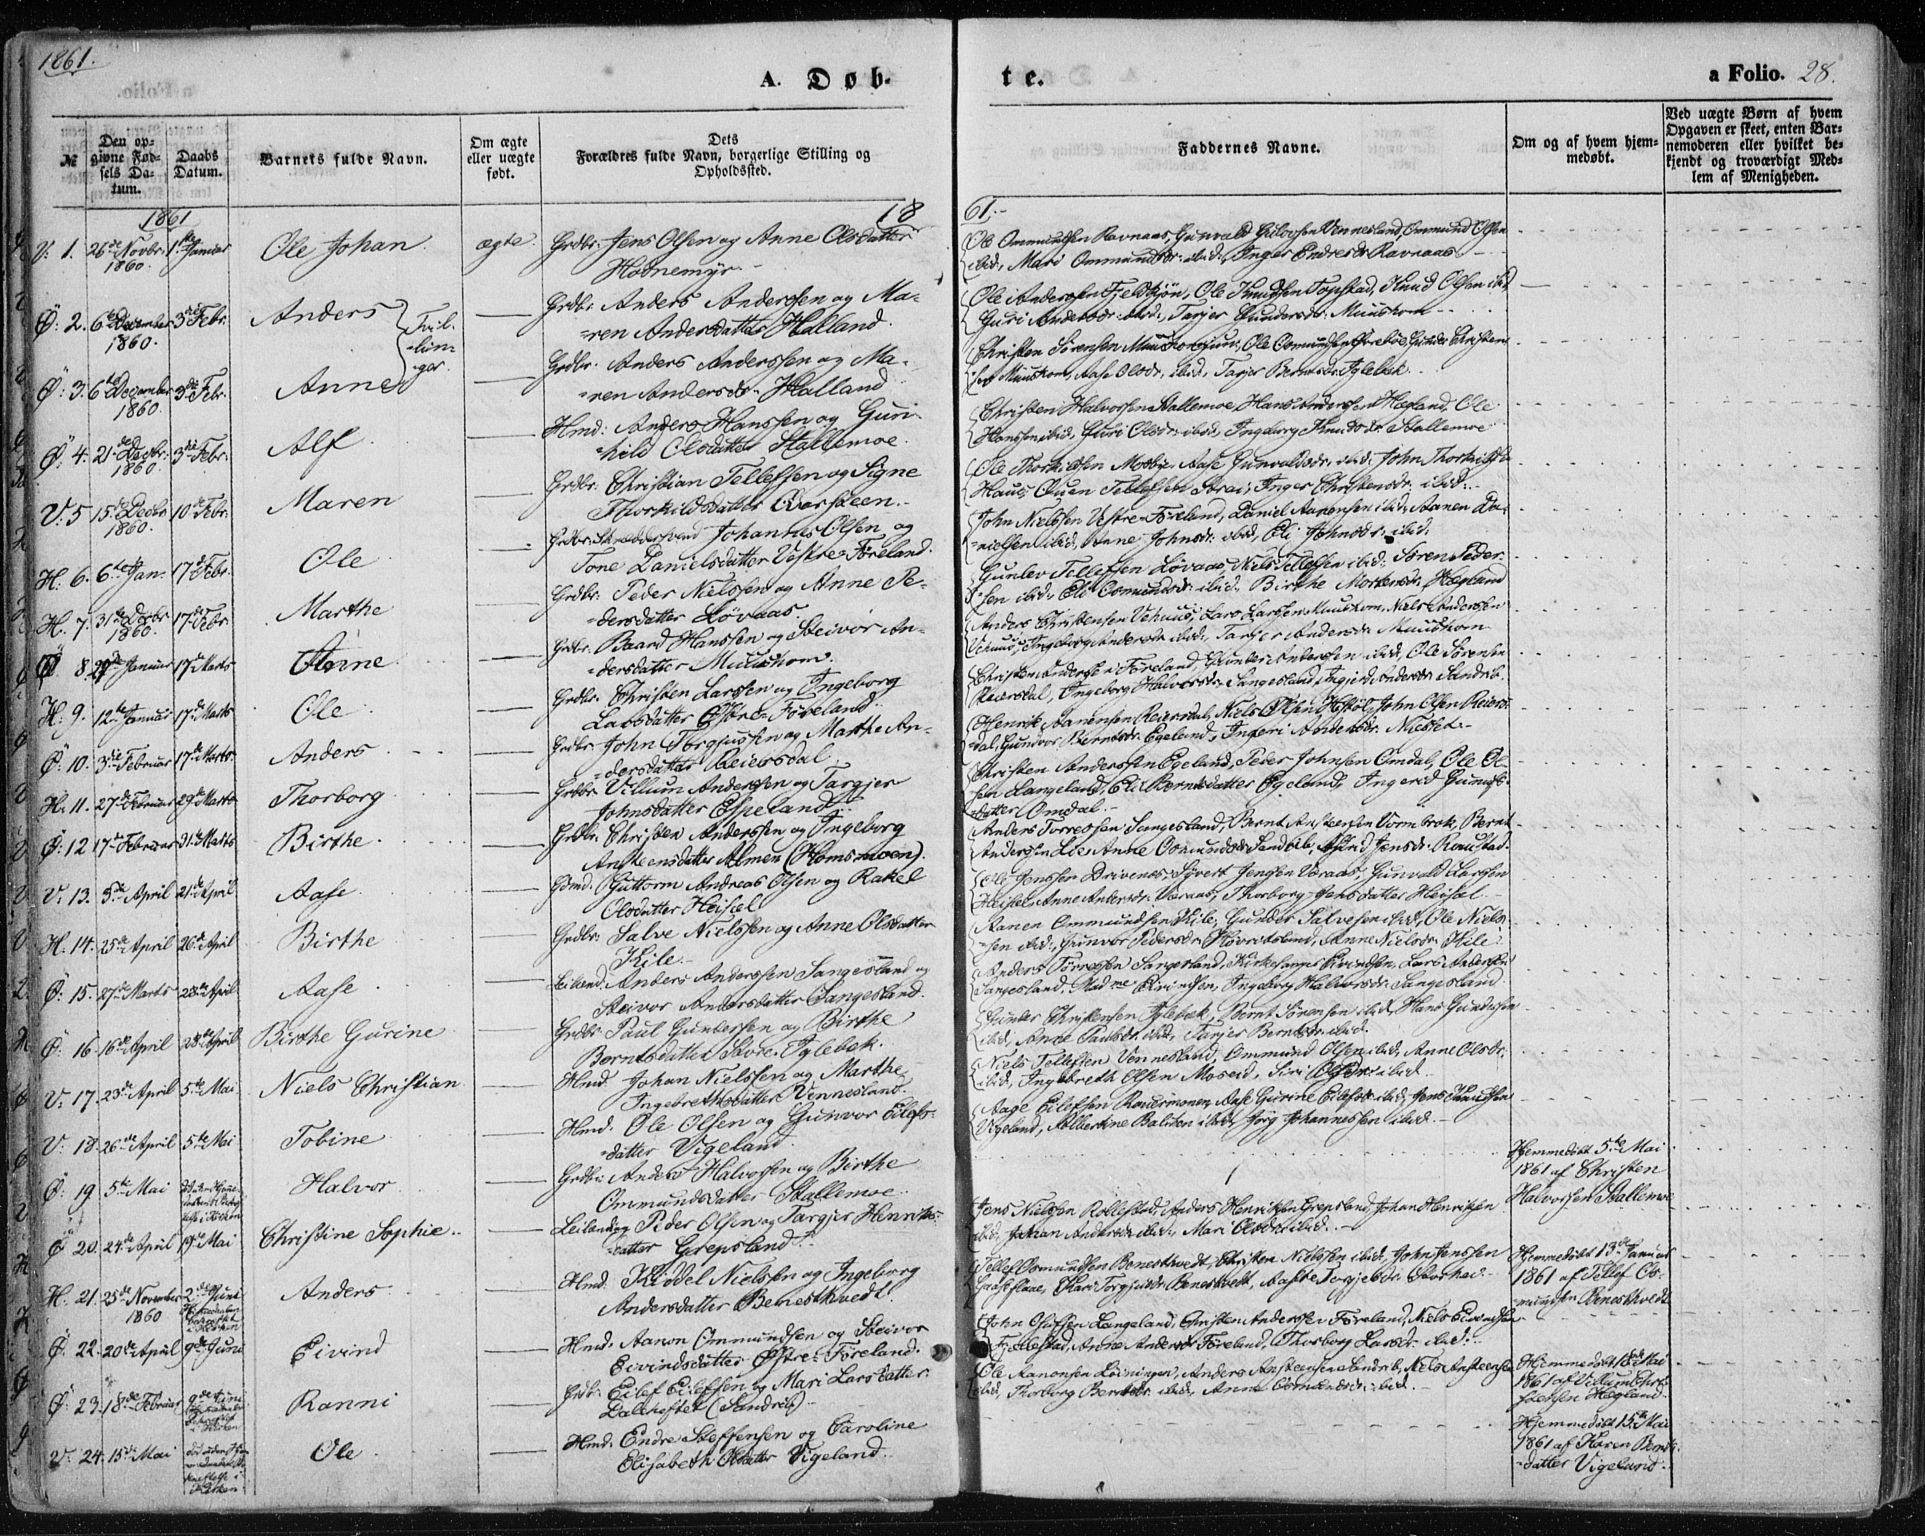 1861.
A. Døb-
te.
a Folio. 28.
№
Den op-
givne Fød-
sels Da-
tum.
Daabs
Datum.
Barnets fulde Navn.
Om ægte
eller uægte
født.
Dets
Forældres fulde Navn, borgerlige Stilling og
Opholdssted.
Faddernes Navne.
Om og af hvem hjem-
medøbt.
Ved uægte Børn af hvem
Opgaven er skeet, enten Bar-
nemoderen eller hvilket be-
kjendt og troværdigt Med-
lem af Menigheden.
1861
18
61.-
V. 1. 26de Novbr. 1ste Januar Ole Johan. ægte. Grdbr. Jens Olsen og Anne Olsdatter
1860. Hodnemyr.
Ole Ommundsen Ravnaas, Gunvald Vennesland, Ommund Olsen
ibid, Mari Ommundsdr. ibid, Inger Endresdr. Ravnaas
Ø. 2. 6te December 3die Febr. Anders Tvil- Grdbr. Anders Anderssen og Ma-
1860. lin- ren Andersdatter Halland.
ger.
Ole Anderssen Ole Knudssen Topstad, Knud Olsen ibid,
Guri Andersdr. ibid, Tarjer Gundersdr. Muuskom
Ø. 3. 6te December 3die Febr. Anne Grdbr. Anders Anderssen og Ma-
1860. ren Andersdr. Halland
Christen Sørensen Ole Osmundsen
Muuskom, Aase Olsdr. ibid, Tarjer Berntsdr. Iglebæk.
Ø. 4. 21de Decbr. 3die Febr. Alf. Hmd. Anders Hanssen og Guri-
1860. hild Olsdatter Stallemoe.
Christen Halvorsen Stallemoe, Hans Anderssen Hægland, Ole
Hanssen ibid, Guri Olsdr. ibid, Ingeborg Knudsdr. Stallemoe
V. 5 15de Decbr. 10de Febr. Maren Grdbr. Christian Tellefsen og Signe
1860. Thorkildsdatter
Ole Thorkildsen Mosby, Aase Gunvaldsdr. ibid, John Thorkildsen
Haus, Tellefsen Inger Christensdr. ibid.
H. 6. 6te Jan. 17de Febr. Ole Johannes Olsen og
Tone Danielsdatter Vestre-Føreland.
John Nielssen Vestre-Føreland, Daniel Aanensen ibid, Aanen Da-
nielsen ibid, Anne Johnsdr. ibid, Eli Johnsdr. ibid.
H. 7. 31te Decbr. 17de Febr. Marthe Grdbr. Peder Nielssen og Anne Pe-
1860. dersdatter Løvaas.
Gunlev Tellefsen Løvaas, Niels Tellefsen ibid, Søren Peder-
sen ibid, Eli Osmundsdr. ibid, Birthe Mortensdr. Hægland
Ø. 8. Januar 17de Marts Grdbr. Baard Hanssen og Steivor An-
dersdatter Muuskom.
Anders Christensen Vehuus, Lars Larssen Muuskom, Niels Anderssen
Vehuus, Ingeborg Andersdr. ibid, Tarjer Andersdr. Muuskom
H. 9. 12te Januar 17de Marts Ole Grdbr. Christen Larssen og Ingeborg
Larsdatter Østre-Føreland.
Christen Anderssen Føreland, Gunder Anderssen ibid, Ole Sørensen
Reiersdal, Ingeborg Halvorsdr. Sangesland, Andersdr. Sandrib.
Ø. 10. 3die Februar 17de Marts. Anders Grdbr. John Torgjussen og Marthe An-
dersdatter Reiersdal.
Henrik Aanensen Reiersdal, Niels Olsen John Olsen Reiers-
dal, Gundvor Berntsdr. Egeland, Ingeri Andersdr.
H. 11. 27de Februar 29de Marts Thorborg Grdbr. Villum Anderssen og Targjer
Johnsdatter Espeland.
Christen Anderssen Egeland, Peder Johnsen Omdal, Ole Ol-
sen Langeland, Eli Berntsdatter Egeland, Ingerid
datter Omdal.
Ø. 12 17de Februar 31te Marts Birthe Grdbr. Christen Anderssen og Ingeborg
Ansteensdatter Almen (Homsmoen).
Anders Torressen Sangesland, Bernt Ansteensen Bernt
Anderssen Lie, Anne Osmundsdr. Sandrib, Jensdr. Raustad.
V. 13. 5te April 21de April Aase. Gdmd. Guttorm Andreas Olsen og Rakel
Olsdatter Heisel
Ole Jenssen Drivenes, Syvert Jensen Vøraas, Gunvald Larssen
Heisel, Anne Andersdr. Vøraas, Thorborg Jensdatter Heisel
H. 14. 25de April 26de April Birthe Grdbr. Salve Nielssen og Anne Olsdatter
Kile.
Aanen Ommundsen Kile, Gunder Salvesen ibid, Ole Niels-
sen ibid, Gunvor Pedersdr. Anne Nielsdr. Kile
Ø. 15. 27de Marts 28de April Aase. Leilænd. Anders Anderssen Sangesland og
Steivor Andersdatter Sangesland.
Anders Torressen Sangesland, Kirkesanger Eivindsen, Lars Anderssen
Sangesland, Madme Eivindsen, Ingeborg Halvorsdr. Sangesland
Ø. 16. 16de April 28de April Birthe Gurine Grdbr. Paul Gunderssen og Birthe
Berntsdatter Iglebæk.
Gunder Christensen Iglebæk, Bernt Sørensen ibid, Hans Gundersen
ibid, Anne Paulsdr. ibid, Tarjer Berntsdr. ibid.
V. 17. 23de April 5te Mai Niels Christian Hmd. Johan Nielssen og Marthe
Ingebrethsdatter Vennesland.
Niels Tellefsen Vennesland, Ommund Olsen ibid, Anne Olsdr.
ibid, Ingebreth Olsen Moseid, Siri ibid.
V. 18. 26de April 5te Mai Tobine Hmd. Ole Olsen og Gunvor Eilefs-
datter Vigeland.
Aage Eilefsen Aase Gurine Eilefsdr. ibid, Jens Knudsen
Vigeland, Albertine Baltzen ibid, Jørg Johannessen ibid.
Ø. 19. 5te Mai Halvor Grdbr. Anders Halvorssen og Birthe
Ommundsdatter Stallemoe.
Hjemmedøbt 5te Mai
1861 af Christen
Halvorssen Stallemoe
Ø. 20. 24de April 19de Mai Christine Sophie. Leilænding Peder Olsen og Targjer Henriks-
datter Grepsland.
Jens Nielssen Rollefstad, Anders Henriksen Grepsland, Johan Henriksen
ibid, Johan Andersen ibid, Mari Olsdr. ibid.
H. 21. 25de November 2den Juni Anders Hmd. Kiddel Nielssen og Ingeborg
1860 Andersdatter Benestvedt.
Tellef Osmundsen Benestvedt, Christen Nielssen ibid, John Jenssen
Kari Torgjusdr. Benestvedt, Aaste Torgjusdr.
Hjemmedøbt 13de Januar
1861 af Tellef Os-
mundsen Benestvedt
Ø. 22. 20de April 9de Juni Eivind Hmd. Aanon Ommundsen og Steivor
Eivindsdatter Østre-Føreland.
John Olufsen Langeland, Christen Anderssen Føreland, Niels Eivindsen
Fjellestad, Anne Andersdr. Føreland, Thorborg Larsdr. ibid.
Ø. 23. 18de Februar 9de Juni Ranni Grdbr. Eilef Eilefssen og Mari Larsdatter
(Sandrib)
Ole Aanonsen Anders Ansteensen Sandrib, Niels Ansteensen
ibid, Thorborg Berntsdr. ibid, Anne Osmundsdr. ibid.
Hjemmedøbt 18de Mai
1861 af Villum Chri-
stensen Hægland.
V. 24. 15de Mai Ole Hmd. Endre Steffensen og Caroline
Elisabeth Olsdatter Vigeland.
Hjemmedøbt 15de Mai
1861 af Karen Bernts-
datter Vigeland.